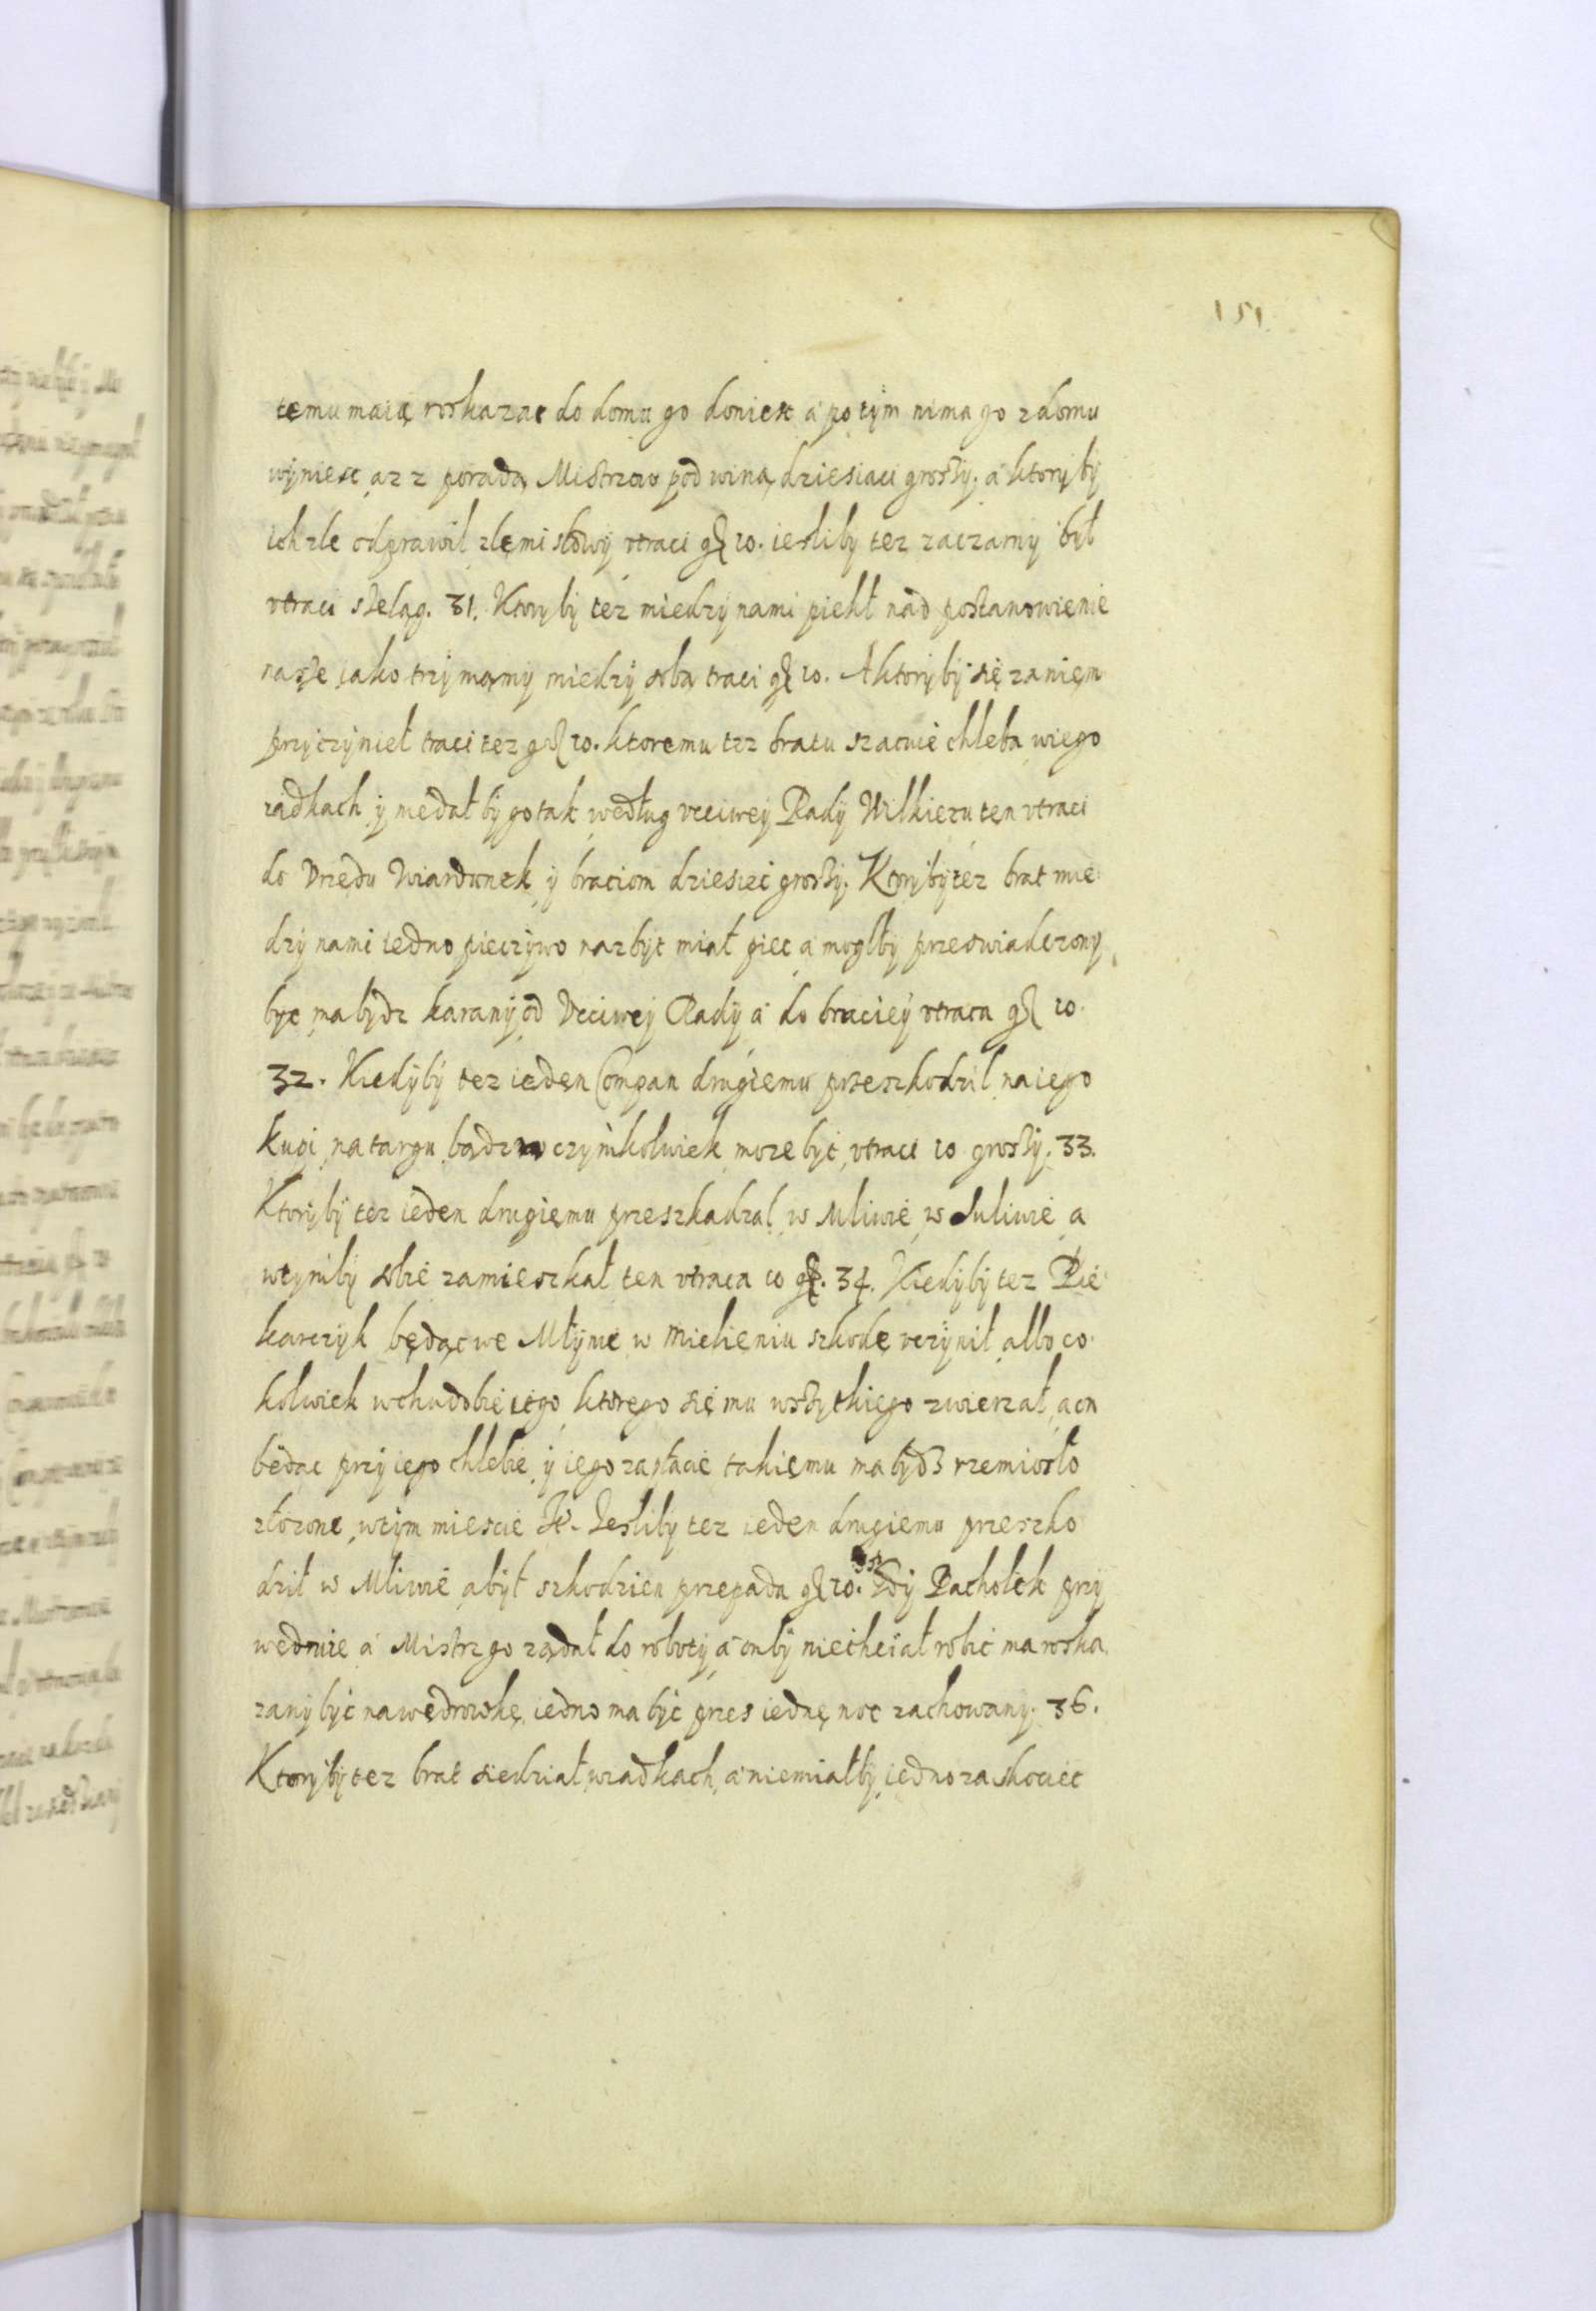 151
temu maią roskazac do domu go doniesc á potÿm nima go z domu
wÿniesc az z poradą Mistrzow pod winą dziesiaci grosSÿ. á ktorÿ bÿ
ich zle odprawił złemi słowÿ vtraci gſ 10. iesliby tez zaczarnÿ był
vtraci szeląg. 31. Ktory bÿ też miedzÿ nami piekł nad postanowienie
nasze iako trzÿmamÿ miedzÿ sobą traci gſ 10. A ktorÿ bÿ się zaniem
przÿczÿnieł traci tez gſ 10. ktoremu tez bratu szacuie chleba wiego
iadkach ÿ niedał bÿ go tak według vcciweÿ Radÿ Wilkierzu ten vtraci
do Vrzędu Wiardunek ÿ braciom dziesieć grosSÿ. Ktorÿbÿ też brat mie
dzÿ nami iedno pieczÿwo nazbÿt miał piec a mogłbÿ przeswiadczony
byc ma bÿdz karanÿ od Vcciweÿ Radÿ á do bracieÿ vtraca gſ 10.
32. Kiedÿbÿ tez ieden Compan drugiemu przeszkodził na iego
kupi na targu bądz w czÿmkolwiek moze bÿć vtraci 10 grosSÿ. 33.
Ktorÿbÿ tez ieden drugiemu przeszkadzał w Mliwie w Suliwie a
wtÿmbÿ sobie zamieszkał ten vtraca 10 gſ. 34. Kiedÿbÿ tez Pie
karczÿk będąc we Młÿnie w mieleniu szkodę vczÿnił albo co
kolwiek wchudobie iego ktorego się mu wsSytkiego zwierzał a on
będac przÿ iego chlebie ÿ iego zasłacie takiemu ma bÿdź rzemiosło
złozone wtÿm miescie Jt. Iesliby tez ieden drugiemu przeszko
dził w Mliwie a bÿł szkodzien przepada gſ 10. 35. Gdÿ Pachołek przÿ
wedruie á Mistrz go ządał do robotÿ á onbÿ niechciał robić ma roska
zanÿ bÿć na wędrowkę iedno ma bÿć przes iednę noc zachowanÿ. 36.
Ktorÿbÿ tez brat siedział wiadkach á niemiałbÿ iedno za skociec